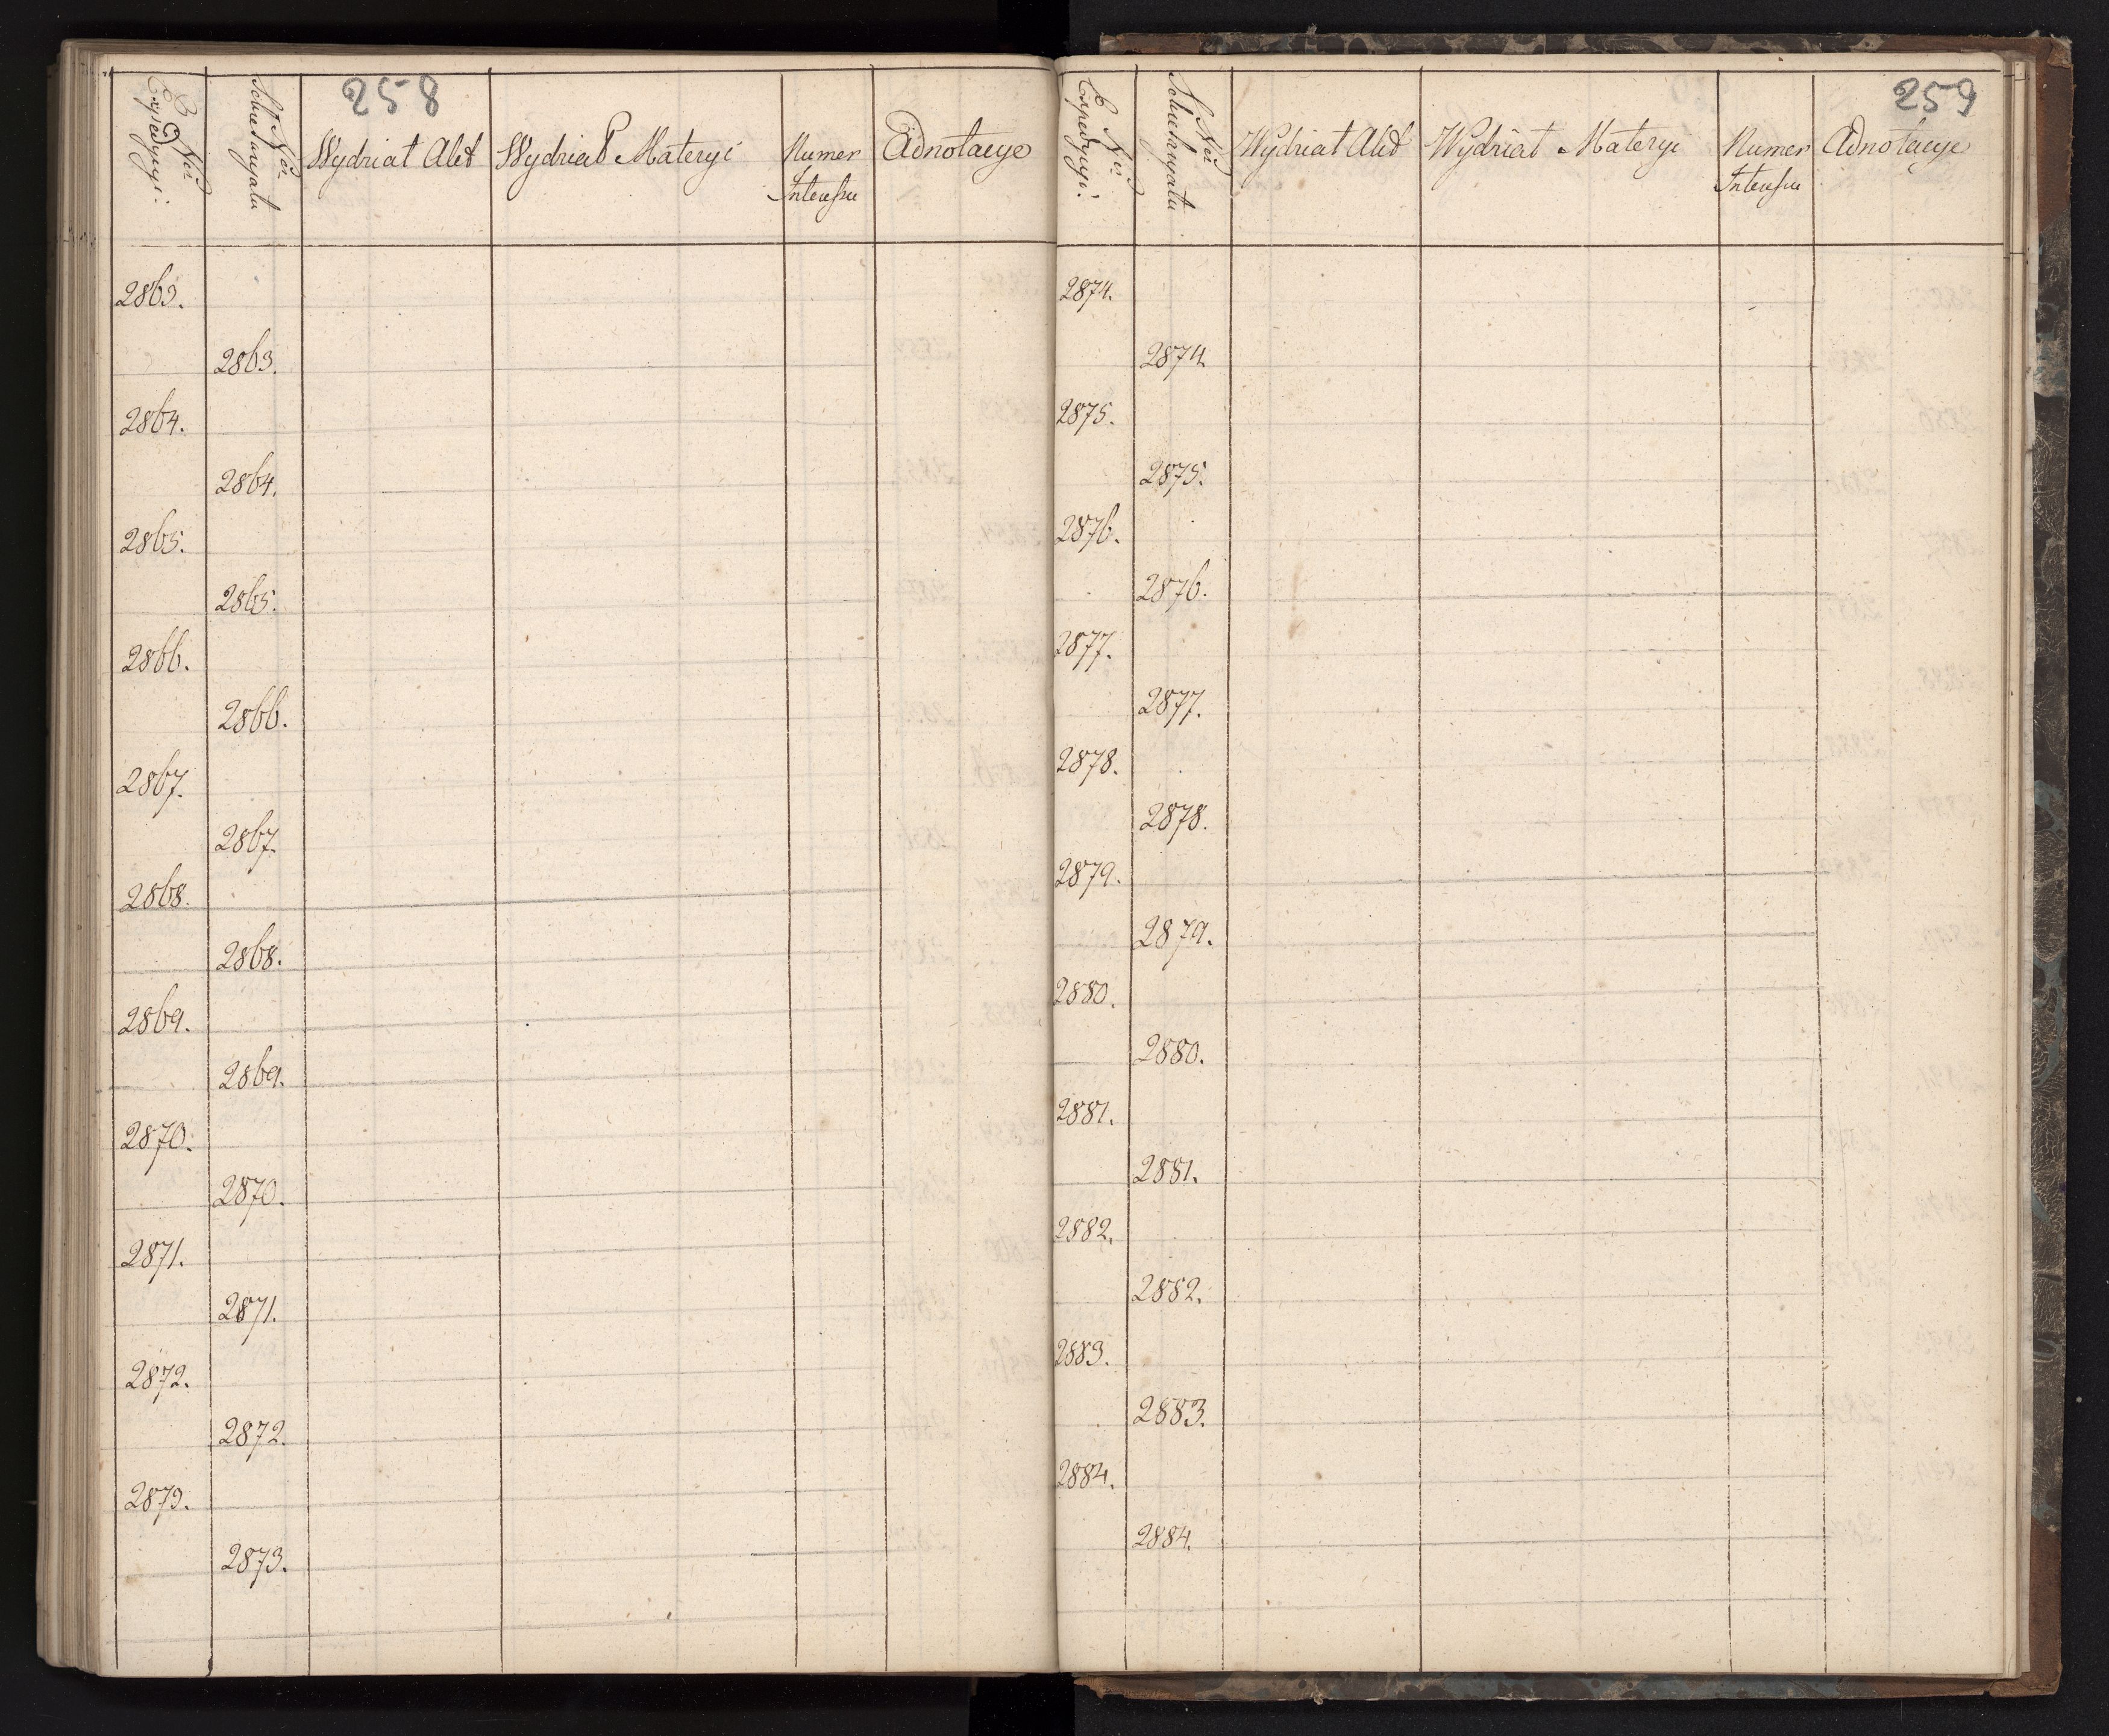 258
Nr Expedycyi
Nr Sekretaryatu
Wydział Akt
Wydział Materyi
Numer
Interessu
Adnotacye
2863.
2863.
2864.
2864.
2865.
2865.
2866.
2866.
2867.
2867.
2868.
2868.
2869.
2869.
2870.
2870.
2871.
2871.
2872.
2872.
2873.
2873.
259
Nr Expedycyi
Nr Sekretaryatu
Wydział Akt
Wydział Materyi
Numer
Interessu
Adnotacye
2874.
2874.
2875.
2875.
2876.
2876.
2877.
2877.
2878.
2878.
2879.
2879.
2880.
2880.
2881.
2881.
2882.
2882.
2883.
2883.
2884.
2884.